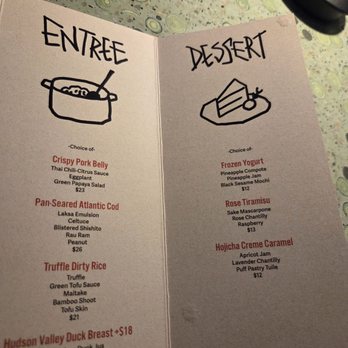 ENTREE
-Choice of-
Crispy Pork Belly
Thai Chili-Citrus Sauce
Eggplant
Green Papaya Salad
$23
Pan-Seared Atlantic Cod
Laksa Emulsion
Celtuce
Blistered Shishito
Rau Ram
Peanut
$26
Truffle Dirty Rice
Truffle
Green Tofu Sauce
Maitake
Bamboo Shoot
Tofu Skin
$21
Hudson Valley Duck Breast +$18
DESSERT
-Choice of-
Frozen Yogurt
Pineapple Compote
Pineapple Jam
Black Sesame Mochi
$12
Rose Tiramisu
Sake Mascarpone
Rose Chantilly
Raspberry
$13
Hojicha Creme Caramel
Apricot Jam
Lavender Chantilly
Puff Pastry Tuile
$12